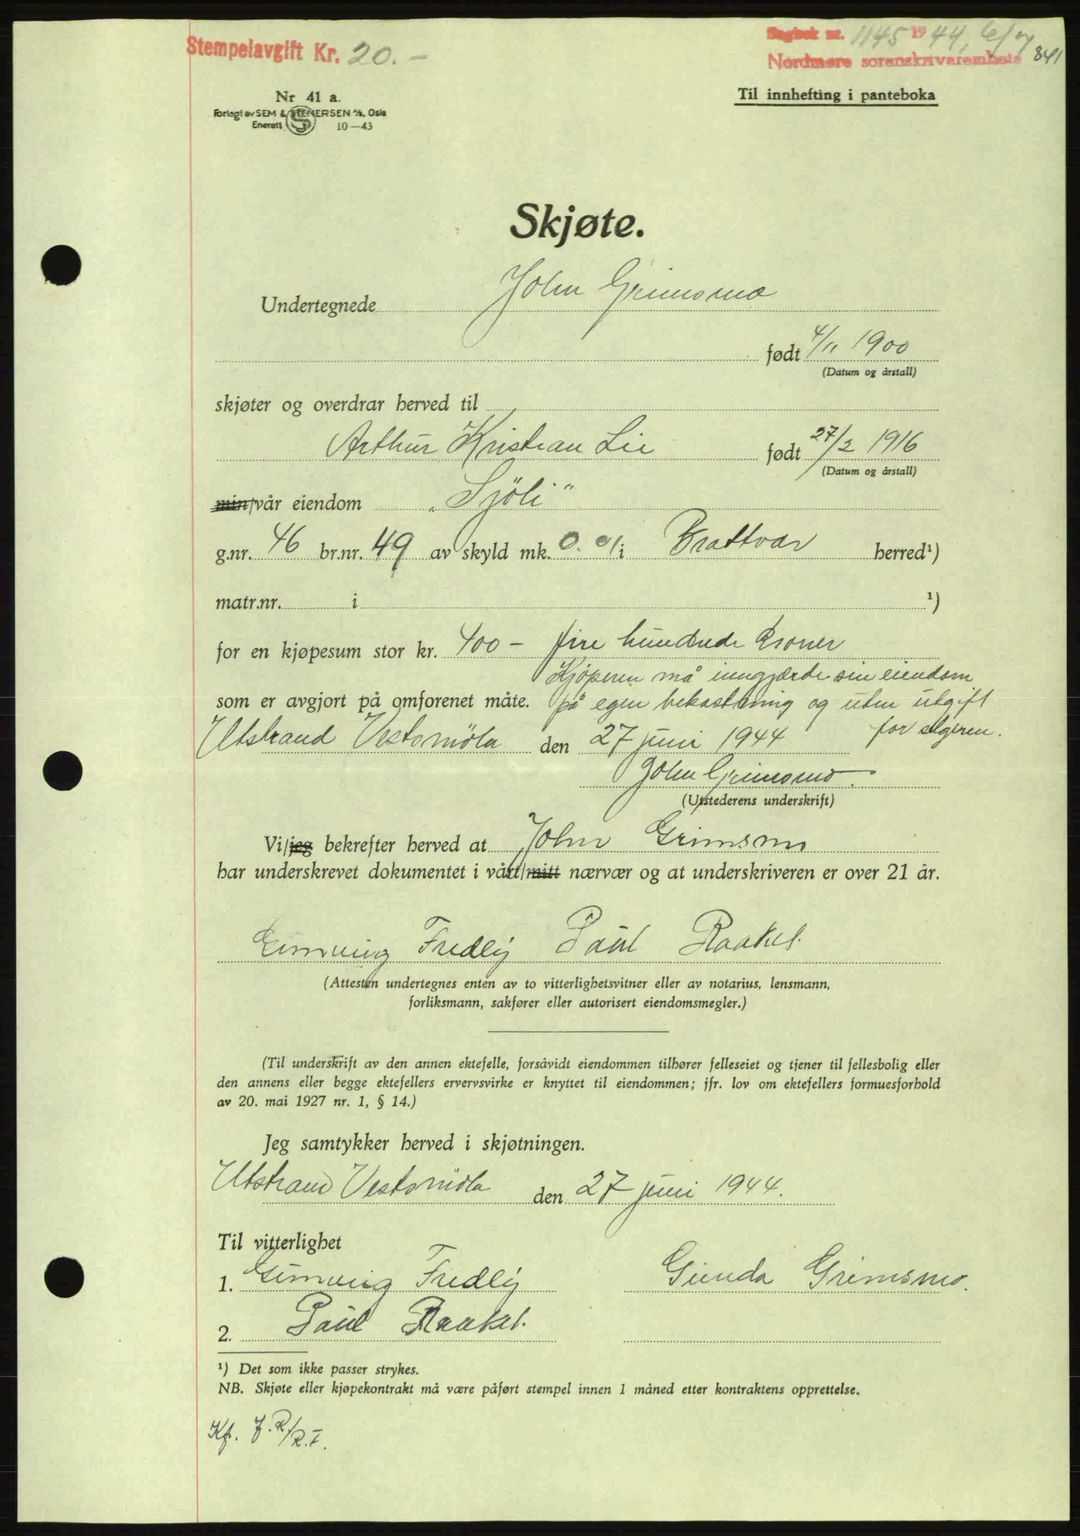 Stempelavgift Kr. 20.-
Dagbok nr. 1145 1944, 6/7
Nordmøre sorenskrivarembete 841
Nr 41 a.
Forlagt av SEM & STENERSEN A/S, Oslo
Enerett 10-43
Til innhefting i panteboka
Skjøte.
Undertegnede John Grimsmo
født 4/11 1900
(Datum og årstall)
skjøter og overdrar herved til
Arthur Kristian Lie født 27/2 1916
(Datum og årstall)
min/vår eiendom „Sjøli"
g.nr. 46 br.nr. 49 av skyld mk. 0.01 i Brattvær herred¹)
matr.nr. i ¹)
for en kjøpesum stor kr. 400 - fire hundrede kroner
Kjøperen må inngjærde sin eiendom
som er avgjort på omforenet måte. på egen bekostning og uten utgift
Utstrand Vestsmöla den 27 juni 1944 for selgeren.
John Grimsmo.
(Utstederens underskrift)
Vi/jeg bekrefter herved at John Grimsmo
har underskrevet dokumentet i vårt/mitt nærvær og at underskriveren er over 21 år.
Fredly Paul Raaket.
(Attesten undertegnes enten av to vitterlighetsvitner eller av notarius, lensmann,
forliksmann, sakfører eller autorisert eiendomsmegler.)
(Til underskrift av den annen ektefelle, forsåvidt eiendommen tilhører felleseiet og tjener til fellesbolig eller
den annens eller begge ektefellers ervervsvirke er knyttet til eiendommen; jfr. lov om ektefellers formuesforhold
av 20. mai 1927 nr. 1, § 14.)
Jeg samtykker herved i skjøtningen.
Utstrand Vestsmöla den 27 juni 1944.
Til vitterlighet
1. Fredly Gunda Grimsmo.
2. Paul Raaket.
¹) Det som ikke passer strykes.
NB. Skjøte eller kjøpekontrakt må være påført stempel innen 1 måned etter kontraktens opprettelse.
Kf. J.R/R.F.